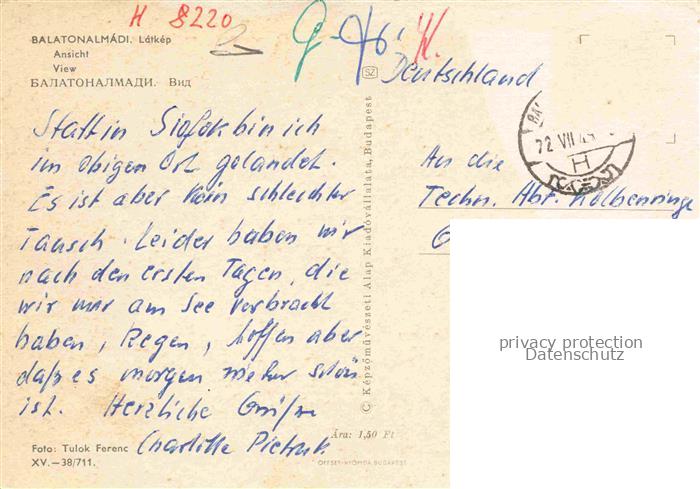 H 8220
BALATONALMÁDI. Látkép
Ansicht
View
БАЛАТОНАЛМАДИ. Вид
Statt in Siofok bin ich
im obigen Ort gelandet.
Es ist aber kein schlechter
Tausch. Leider haben wir
nach den ersten Tagen, die
wir nur am See verbracht
haben, Regen, hoffen aber
daß es morgen wieder schön
ist. Herzliche Grüße
Charlotte
Foto: Tulok Ferenc
XV.—38/711.
SZ
© Képzőművészeti Alap Kiadóvállalata, Budapest
Ára: 1,50 Ft
OFFSET-NYOMDA BUDAPEST
Deutschland
72 VII
H
An die
Techn. Abr. Kolbenringe
privacy protection
Datenschutz